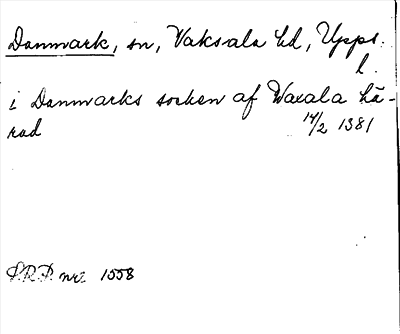 Danmark, sn, Vaksala hd, Upps.
l.
i Danmarks socken af Waxala hä-
rad 14/2 1381
S.R.P. nr. 1558